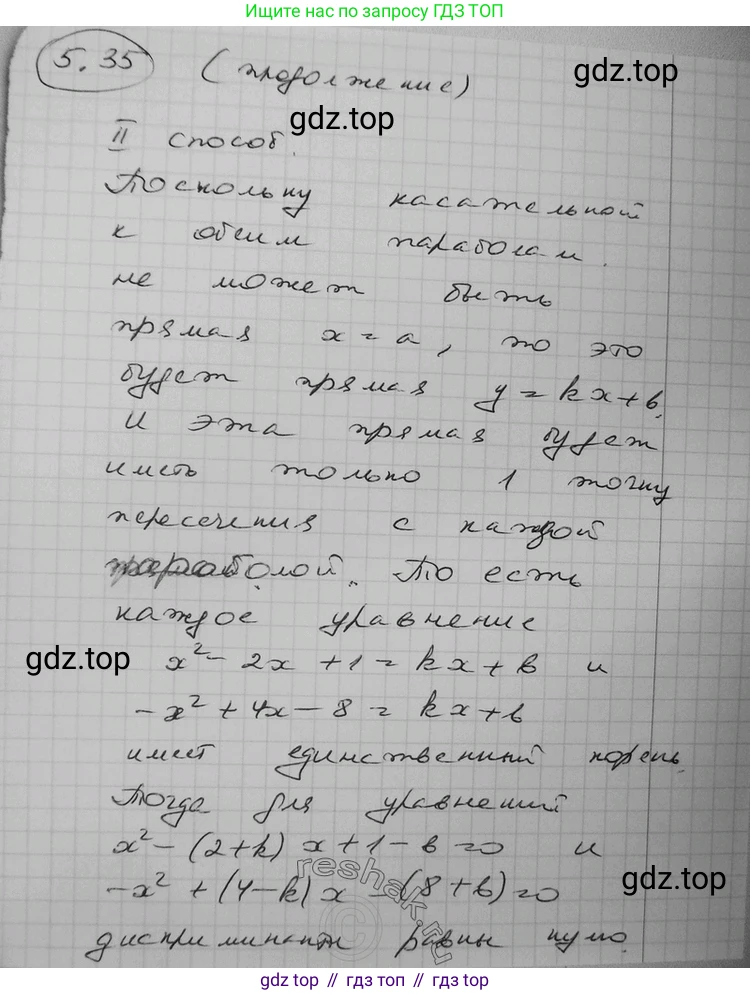 Ищите нас в поиске по запросу ГДЗ ТОП
5.35 (продолжение)
gdz.top
gdz.top
II способ.
Поскольку касательной
к обеим параболам
не может быть
прямая x = a, то это
будет прямая y = kx + b.
И эта прямая будет
иметь только 1 точку
пересечения с каждой
параболой. То есть
каждое уравнение
gdz.top
x² - 2x + 1 = kx + b и
-x² + 4x - 8 = kx + b
имеет единственный корень.
Тогда для уравнений
x² - (2+k)x + 1 - b = 0 и
-x² + (4-k)x - (8+b) = 0
gdz.top
reshak.ru
дискриминанты равны нулю.
gdz.top // гдз топ // gdz.top